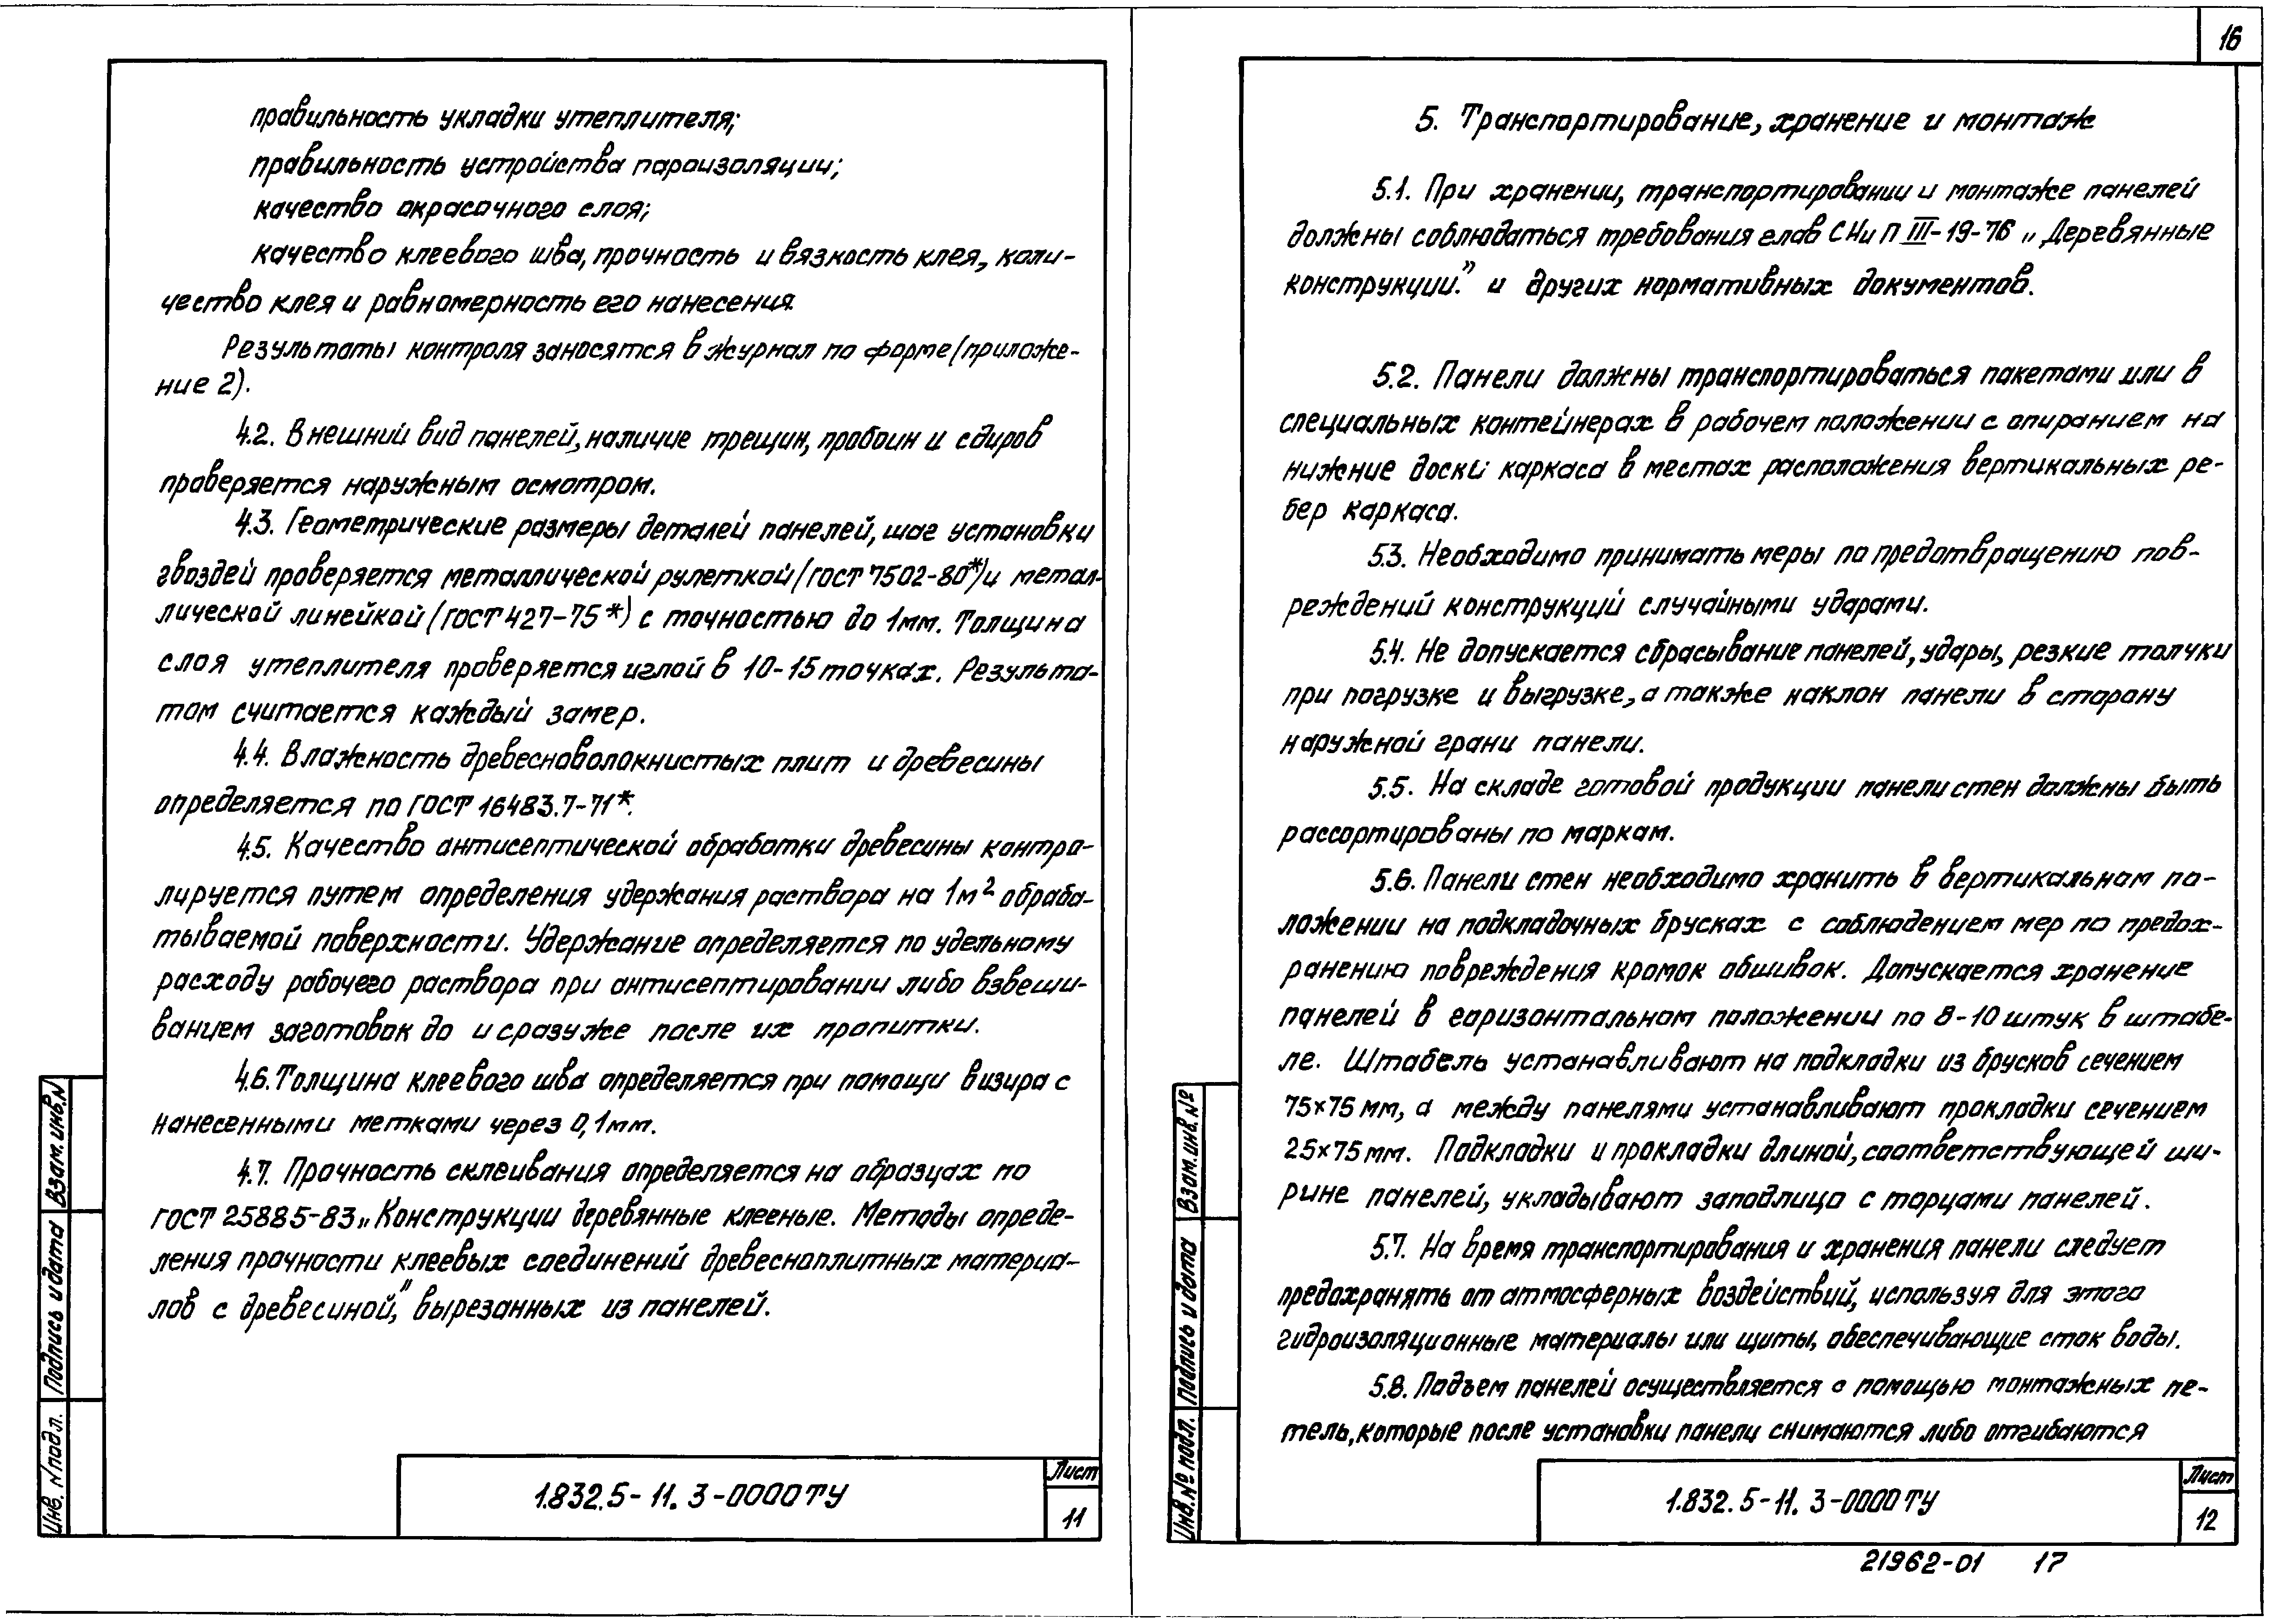 правильность укладки утеплителя;
правильность устройства пароизоляции;
качество окрасочного слоя;
качество клеевого шва, прочность и вязкость клея, коли-
чество клея и равномерность его нанесения.
Результаты контроля заносятся в журнал по форме (приложе-
ние 2).
4.2. Внешний вид панелей, наличие трещин, пробоин и сдиров
проверяется наружным осмотром.
4.3. Геометрические размеры деталей панелей, шаг установки
гвоздей проверяется металлической рулеткой (ГОСТ 7502-80*) и метал-
лической линейкой (ГОСТ 427-75*) с точностью до 1мм. Толщина
слоя утеплителя проверяется иглой в 10-15 точках. Результа-
том считается каждый замер.
4.4. Влажность древесноволокнистых плит и древесины
определяется по ГОСТ 16483.7-71*.
4.5. Качество антисептической обработки древесины контро-
лируется путем определения удержания раствора на 1м² обраба-
тываемой поверхности. Удержание определяется по удельному
расходу рабочего раствора при антисептировании либо взвеши-
ванием заготовок до и сразу же после их пропитки.
4.6. Толщина клеевого шва определяется при помощи визира с
нанесенными метками через 0,1мм.
4.7. Прочность склеивания определяется на образцах по
ГОСТ 25885-83 „Конструкции деревянные клееные. Методы опреде-
ления прочности клеевых соединений древесноплитных материа-
лов с древесиной," вырезанных из панелей.
Взам. инв. N
Подпись и дата
Инв. N подл.
1.832.5-11.3-0000ТУ
Лист
11
16
5. Транспортирование, хранение и монтаж
5.1. При хранении, транспортировании и монтаже панелей
должны соблюдаться требования глав СНиП III-19-76 „Деревянные
конструкции." и других нормативных документов.
5.2. Панели должны транспортироваться пакетами или в
специальных контейнерах в рабочем положении с опиранием на
нижние доски каркаса в местах расположения вертикальных ре-
бер каркаса.
5.3. Необходимо принимать меры по предотвращению пов-
реждений конструкций случайными ударами.
5.4. Не допускается сбрасывание панелей, удары, резкие толчки
при погрузке и выгрузке, а также наклон панели в сторону
наружной грани панели.
5.5. На складе готовой продукции панели стен должны быть
рассортированы по маркам.
5.6. Панели стен необходимо хранить в вертикальном по-
ложении на подкладочных брусках с соблюдением мер по предох-
ранению повреждения кромок обшивок. Допускается хранение
панелей в горизонтальном положении по 8-10 штук в штабе-
ле. Штабель устанавливают на подкладки из брусков сечением
75×75 мм, а между панелями устанавливают прокладки сечением
25×75 мм. Подкладки и прокладки длиной, соответствующей ши-
рине панелей, укладывают заподлицо с торцами панелей.
5.7. На время транспортирования и хранения панели следует
предохранять от атмосферных воздействий, используя для этого
гидроизоляционные материалы или щиты, обеспечивающие сток воды.
5.8. Подъем панелей осуществляется с помощью монтажных пе-
тель, которые после установки панели снимаются либо отгибаются
Взам. инв. №
Подпись и дата
Инв. № подл.
1.832.5-11.3-0000ТУ
Лист
12
21962-01 17